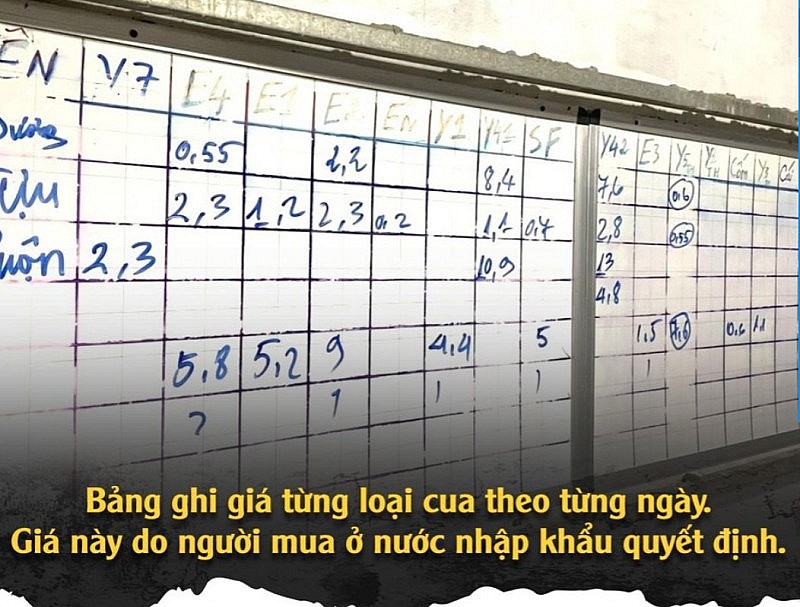 ÊN V.7 E4 E1 E2 EN Y1 Y41 SF Y42 E3 Cốm Y3
Dương 0,55 2,2 8,4 7,6 0,6
2,3 1,2 2,3 0,2 1,1 0,7 2,8 0,55
2,3 10,9 13
4,8
5,8 5,2 9 4,4 5 1,5 1,1
Bảng ghi giá từng loại cua theo từng ngày.
Giá này do người mua ở nước nhập khẩu quyết định.